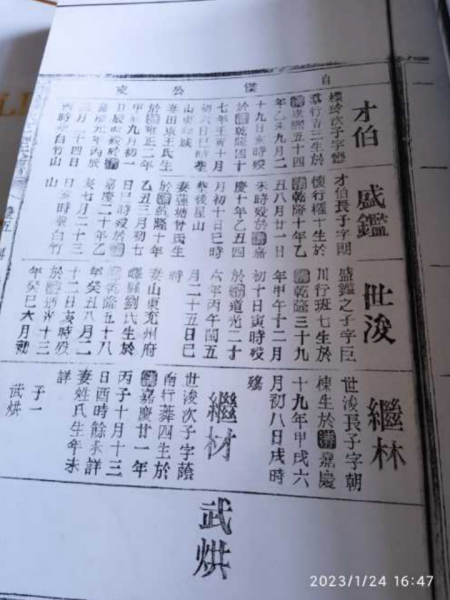 才伯
玲次子字
行吉三生於
清康熙五十四
年乙未九月二
十九日未時歿
於清乾隆四十
七年壬寅十月
初六日巳時葬
山東歷城
妻田東王氏生
於清雍正二年
甲辰九月初
日辰時歿於清
嘉慶元年丙辰
三月二十四日
酉時葬白竹山
盛鑑
才伯長子字開
懷行權十生於
清乾隆十年乙
丑八月廿一日
未時歿於清嘉
慶十年乙丑四
月初十日巳時
葬後屋山
妻蓮塘甘氏生
於清乾隆十年
乙丑三月初七
日巳時歿於清
嘉慶二十年乙
亥七月二十三
日亥時葬白竹
山
世浚
盛鑑之子字巨
川行班七生於
清乾隆三十九
年甲午十二月
初十日寅時歿
於清道光二十
六年丙午閏五
月二十五日巳
時
妻山東兗州府
嶧縣劉氏生於
清乾隆五十八
年癸丑八月二
十二日亥時歿
於清道光十三
年癸巳六月
繼林
世浚長子字朝
棟生於清嘉慶
十九年甲戌六
月初八日戌時
殤
繼材
世浚次子字蔭
南行葬四生於
清嘉慶廿一年
丙子十月十三
日酉時餘未詳
妻姓氏生年未
詳
子一
武烘
武烘
2023/1/24 16:47